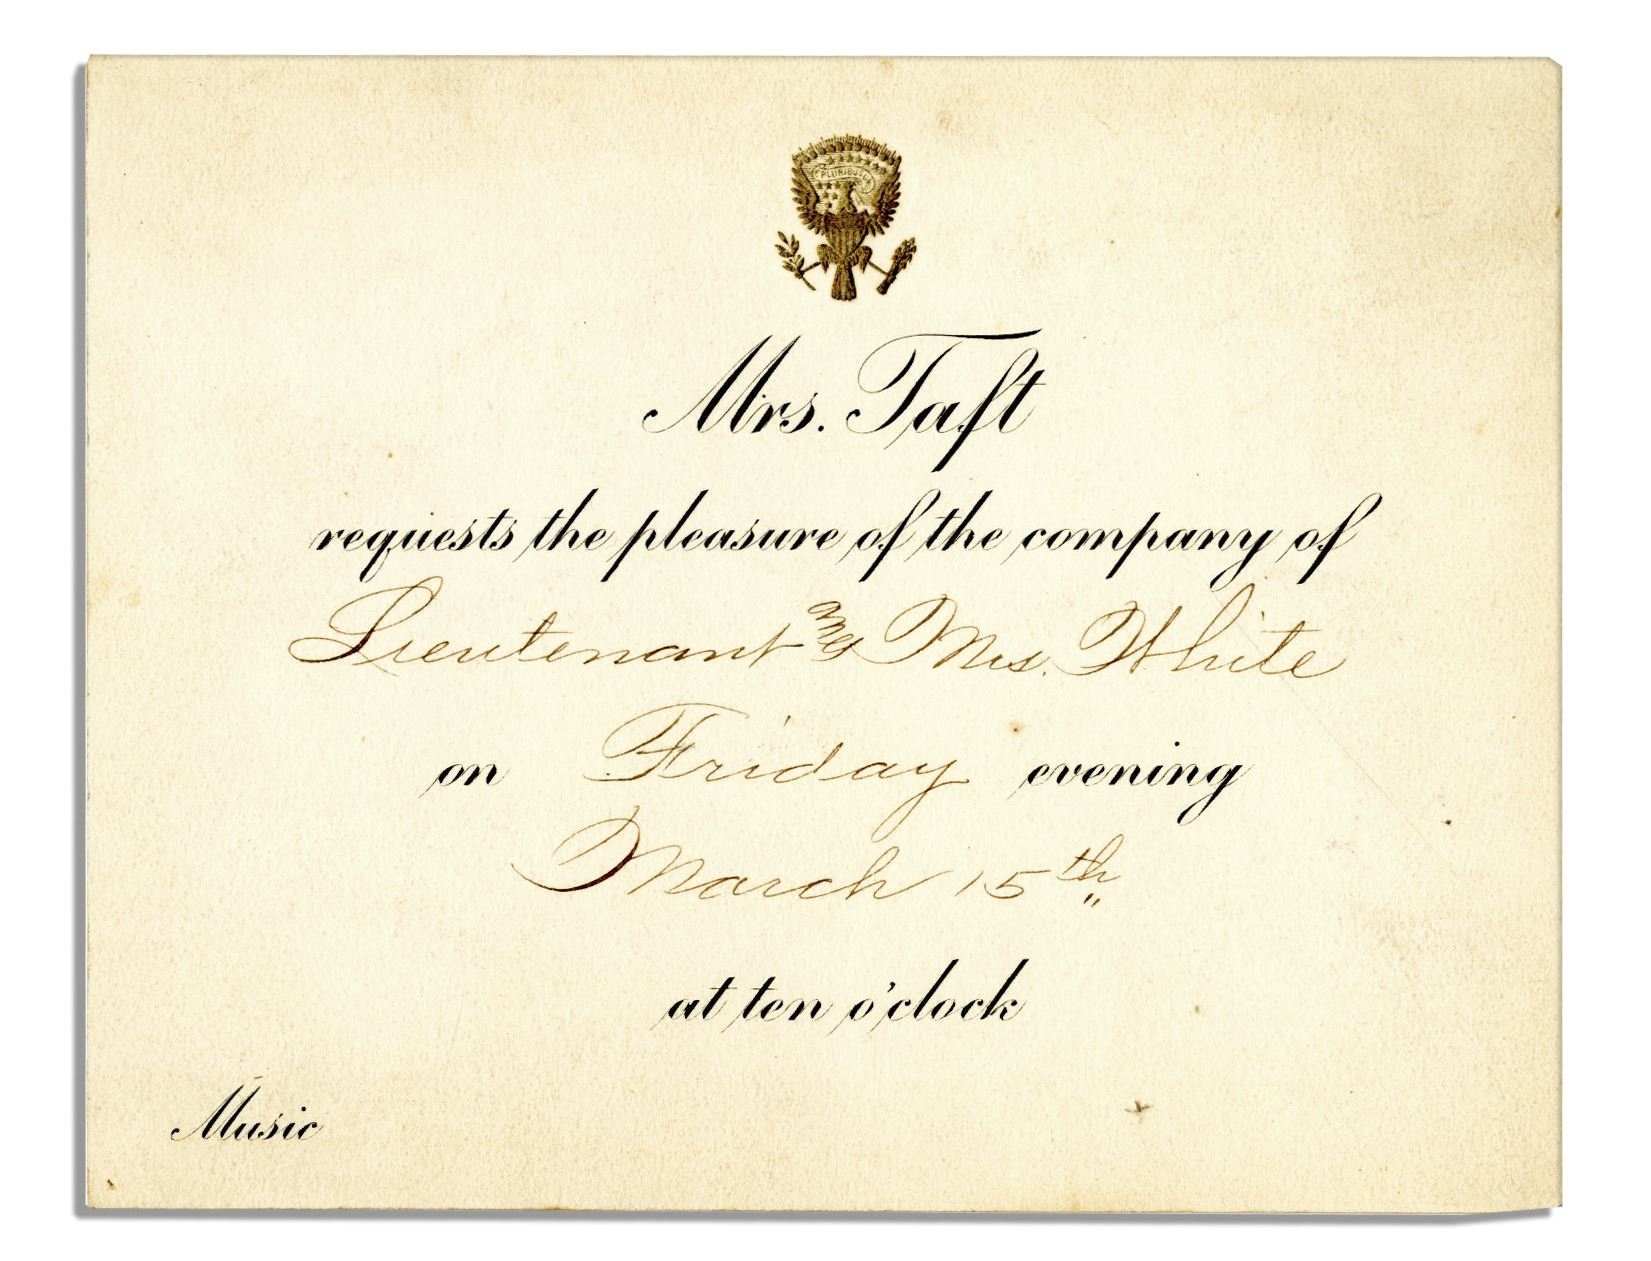 PLURIBUS
Mrs. Taft
requests the pleasure of the company of
Lieutenant and Mrs. White
on Friday evening
March 15th
at ten o'clock
Music